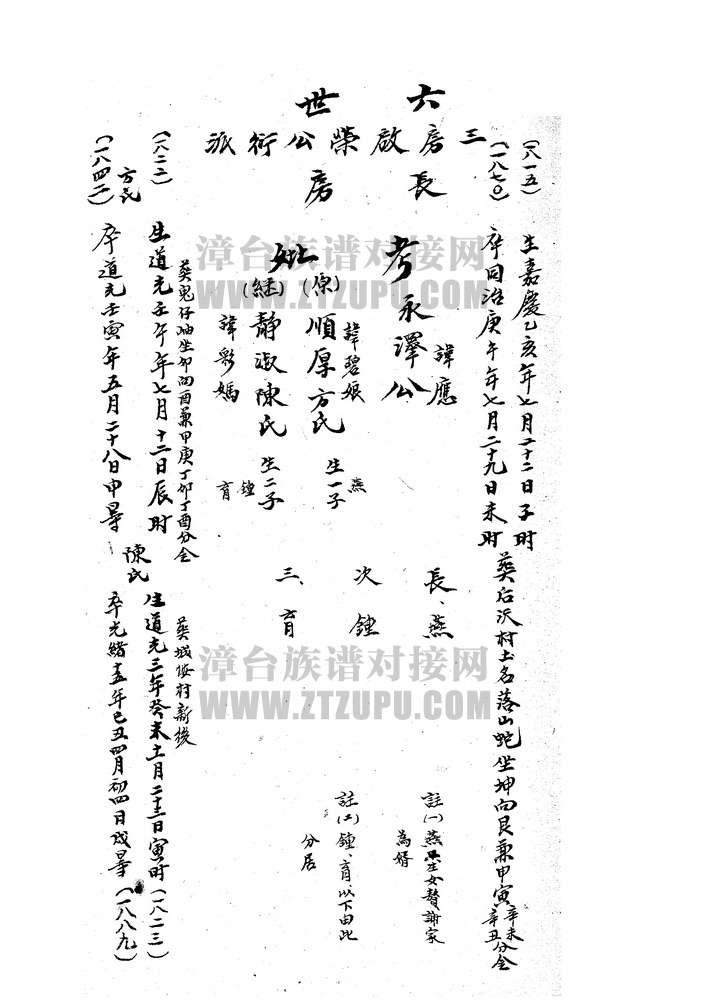 六世
三房長
啟榮公房衍派
(一八一五)
生嘉慶乙亥年七月二十二日子時
(一八七〇)
卒同治庚午年七月二十九日未時
葬后沃村土名落山蛇坐坤向艮兼甲寅辛未辛丑分金
考永澤公
諱應
妣
(原)順厚方氏
諱碧娘
生一子
燕
(継)靜淑陳氏
諱彩媽
生二子
鍾
育
長、燕
次鍾
三、育
註(一)燕只生女贅謝家為婿
註(二)鍾、育以下由此分居
葬鬼仔油坐卯向酉兼甲庚丁卯丁酉分金
方氏
(一八二二)
生道光壬午年七月十二日辰時
(一八四二)
卒道光壬寅年五月二十八日申畧
陳氏
葬城后村新後
生道光三年癸未十一月二十三日寅時(一八二三)
卒光緒十五年己丑四月初四日戌畧(一八八九)
漳台族谱对接网
WWW.ZTZUPU.COM
漳台族谱对接网
WWW.ZTZUPU.COM